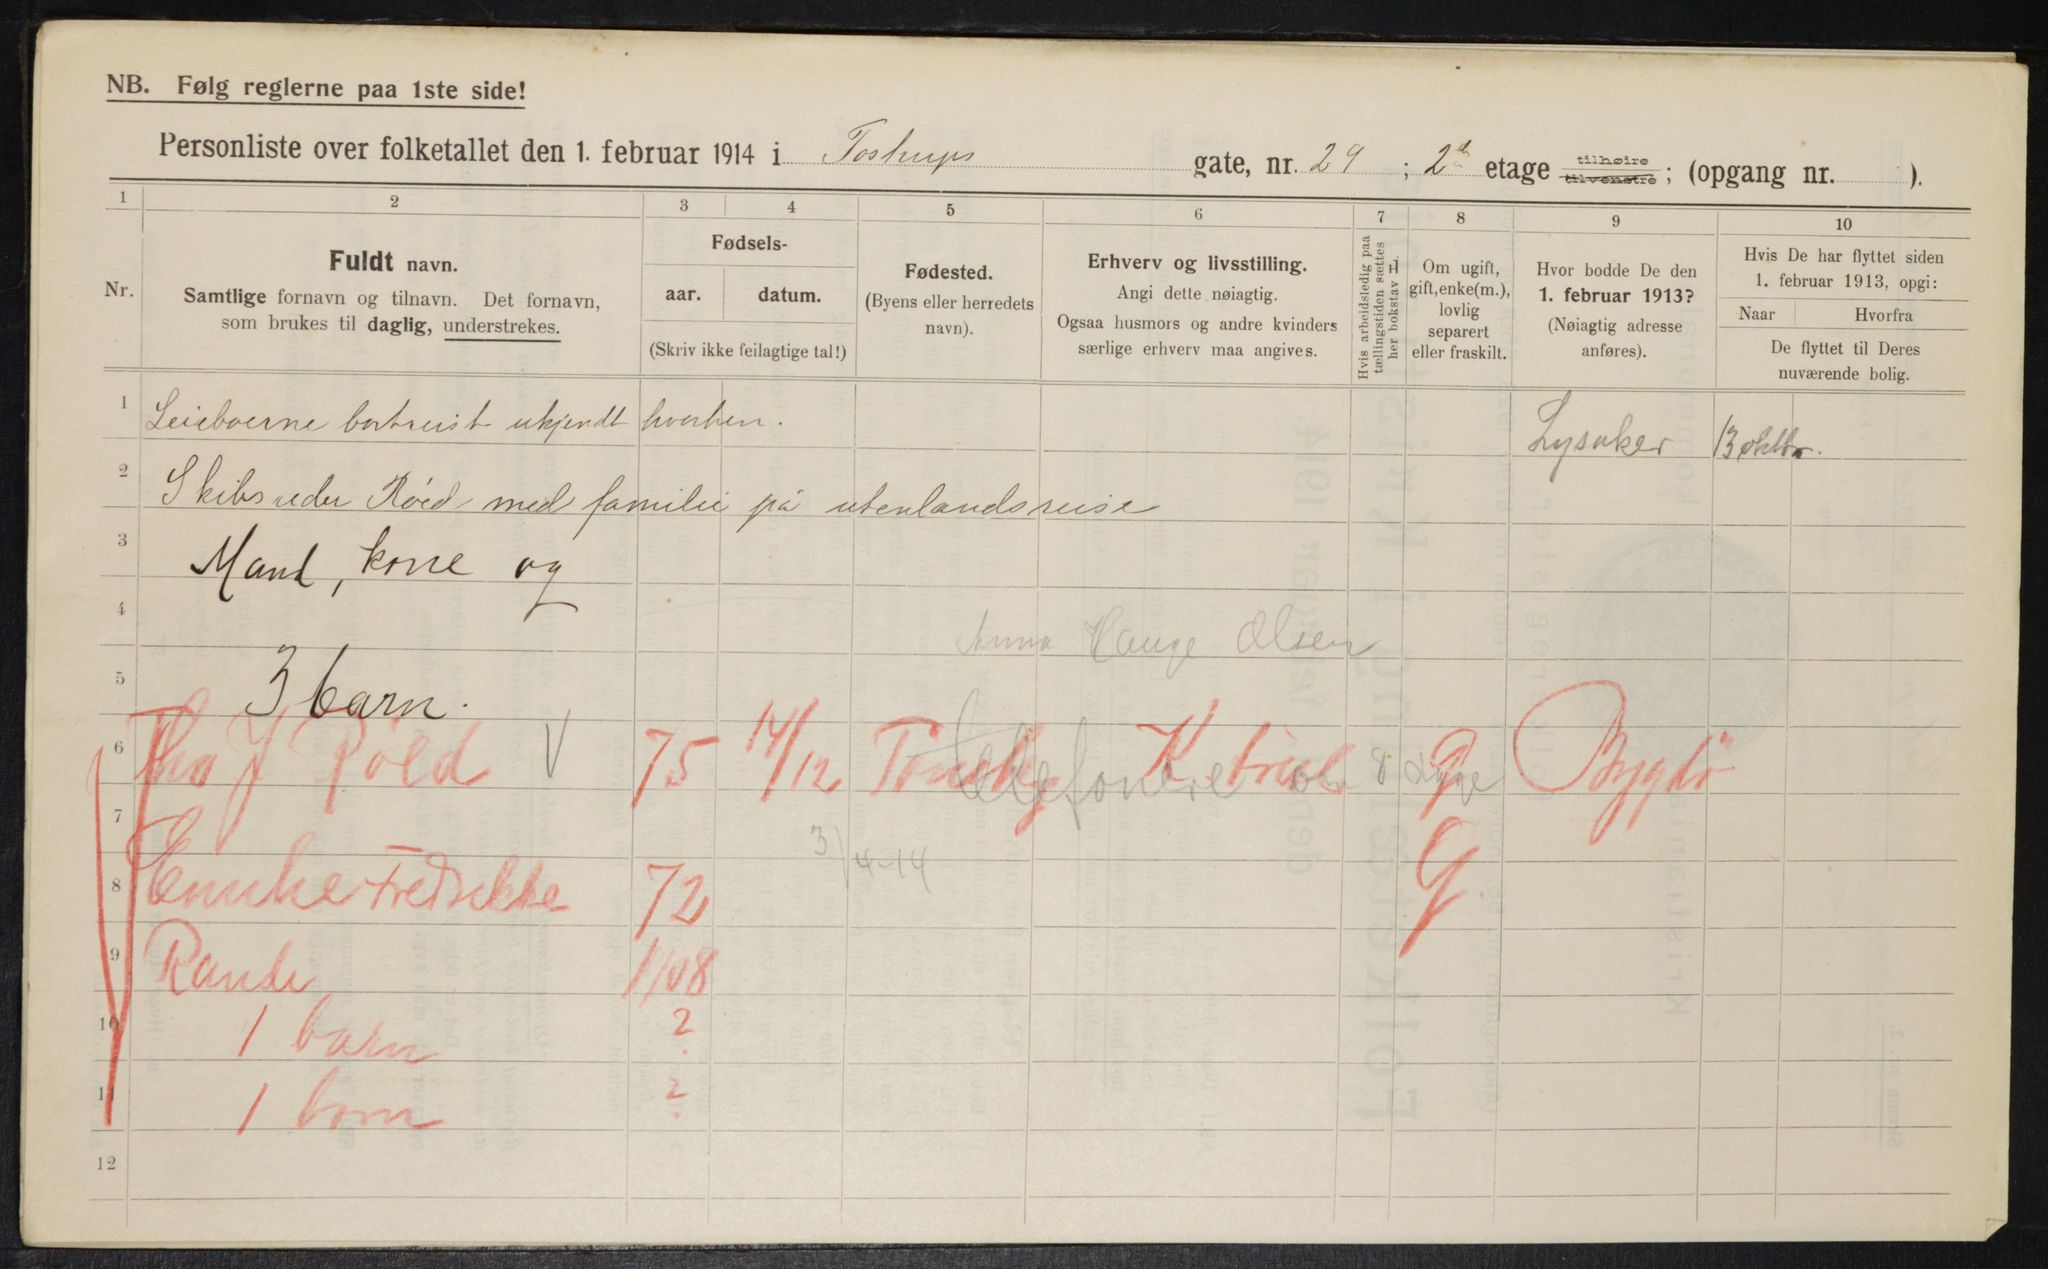 NB. Følg reglerne paa 1ste side!
Personliste over folketallet den 1. februar 1914 i Tostrups gate, nr. 29; 2d etage tilhøire tilvenstre; (opgang nr. ).
1 2 3 4 5 6 7 8 9 10
Nr.
Fuldt navn.
Samtlige fornavn og tilnavn. Det fornavn,
som brukes til daglig, understrekes.
Fødsels-
aar. datum.
(Skriv ikke feilagtige tal!)
Fødested.
(Byens eller herredets
navn).
Erhverv og livsstilling.
Angi dette nøiagtig.
Ogsaa husmors og andre kvinders
særlige erhverv maa angives.
Hvis arbeidsledig paa
tællingstiden sættes
her bokstav L
Om ugift,
gift, enke(m.),
lovlig
separert
eller fraskilt.
Hvor bodde De den
1. februar 1913?
(Nøiagtig adresse
anføres).
Hvis De har flyttet siden
1. februar 1913, opgi:
Naar Hvorfra
De flyttet til Deres
nuværende bolig.
1 Leieboerne bortreist ukjendt hvorhen. Lysaker 13 oktbr.
2 Skibsreder Röed med familie på utenlandsreise
3 Mand, kone og
4
Anna Hauge Olsen
5 3 barn.
6 Tho J Röed V 75 14/12 Tönsbg K. G Bygdö
telefonere
7
3/4-14
8 Fredrikke 72 G.
9 1908
10 1 barn 2
11 1 barn 2
12